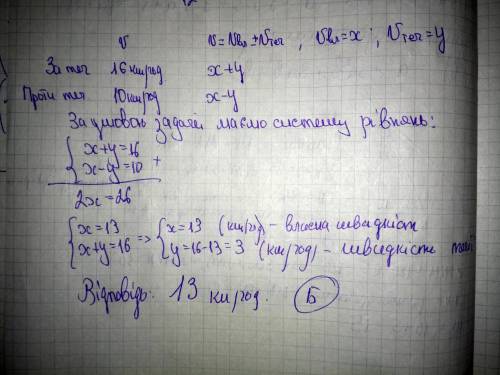 v v=vвл±vтеч, vвл=x; vтеч=y
За теч 16км/год x+y
Проти теч 10км/год x-y
За умовою задачі маємо систему рівнянь:
x+y=16
x-y=10 +
2x=26
x=13 => x=13 (км/год) - власна швидкість
x+y=16 y=16-13=3 (км/год) - швидкість течії
Відповідь: 13 км/год. Б